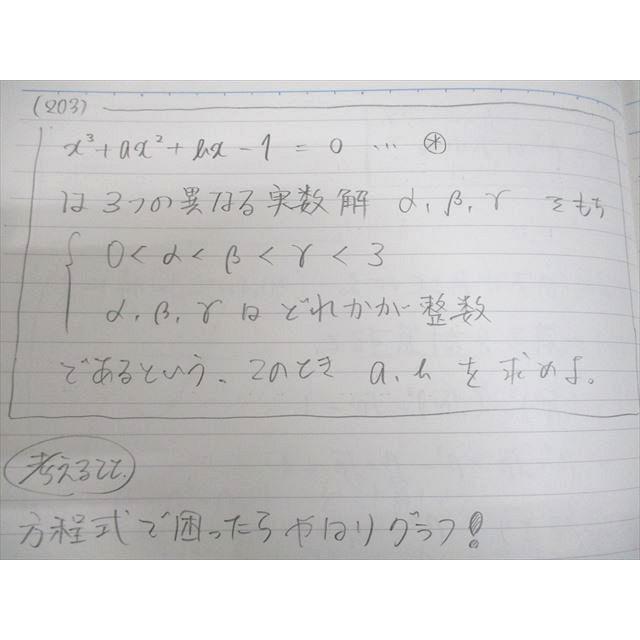 (203)
x³+ax²+bx-1=0 … ⊛
は3つの異なる実数解 α, β, γ をもち
0<α<β<γ<3
α, β, γ はどれかが整数
であるという。このとき a, b を求めよ。
考えること
方程式で困ったらやはりグラフ!